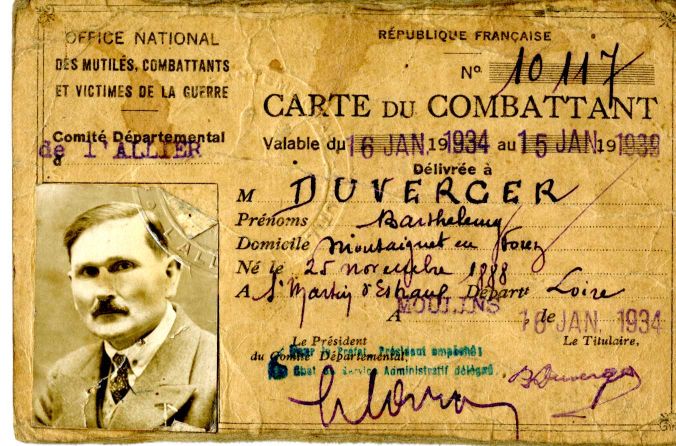 OFFICE NATIONAL
DES MUTILÉS, COMBATTANTS
ET VICTIMES DE LA GUERRE
Comité Départemental
de l'ALLIER
RÉPUBLIQUE FRANÇAISE
N° 10117
CARTE DU COMBATTANT
Valable du 16 JAN. 1934 au 15 JAN. 1939
Délivrée à
M DUVERGER
Prénoms Barthelemy
Domicile Montaiguet en Forez
Né le 25 novembre 1888
A St Martin d'Estreaux Départt Loire
A MOULINS le 16 JAN. 1934
Le Président
du Comité Départemental,
Le Titulaire,
Pour le Préfet, Président empêché:
Chef de Service Administratif délégué,
B Duverger